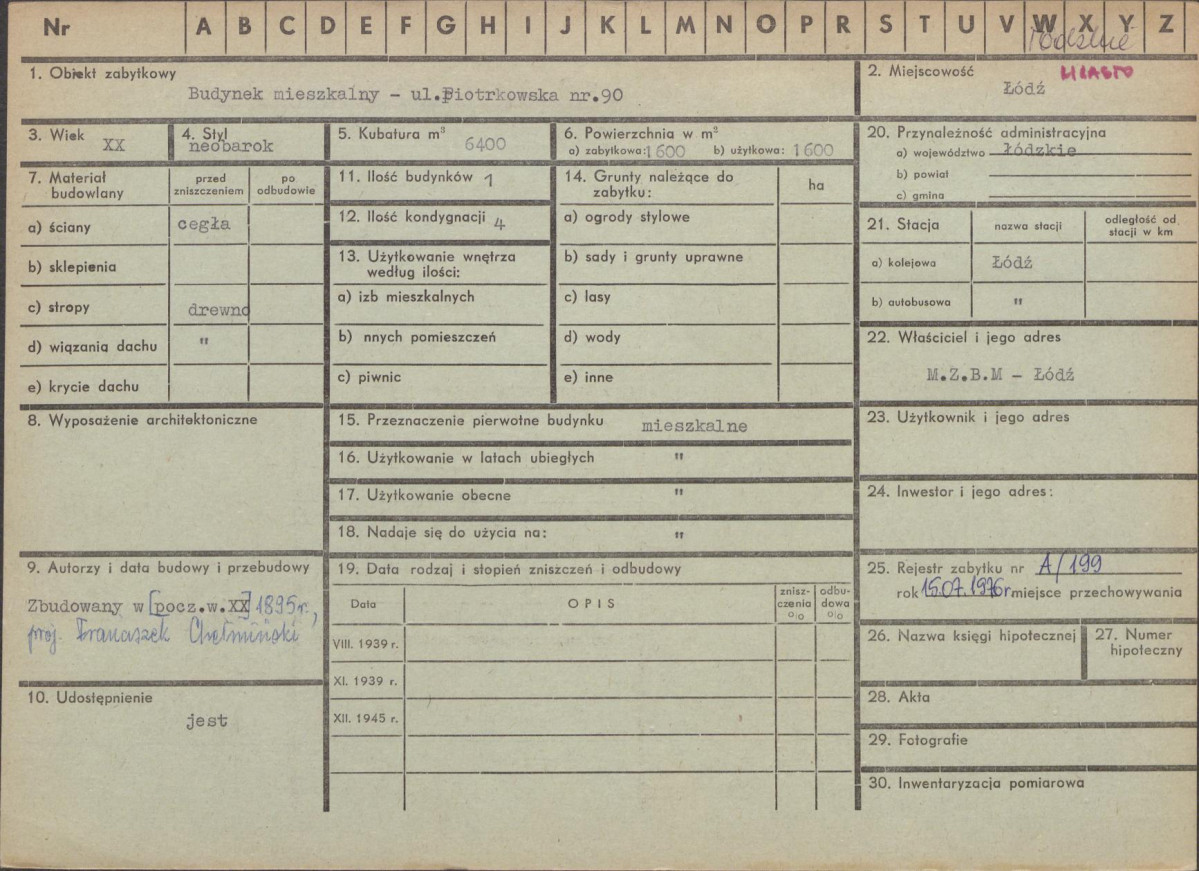 Nr A B C D E F G H I J K L M N O P R S T U V W X Y Z
łódzkie
1. Obiekt zabytkowy
Budynek mieszkalny - ul.Piotrkowska nr.90
2. Miejscowość MIASTO
Łódź
3. Wiek
XX
4. Styl
neobarok
5. Kubatura m³
6400
6. Powierzchnia w m²
a) zabytkowa: 1600 b) użytkowa: 1600
20. Przynależność administracyjna
a) województwo łódzkie
b) powiat
c) gmina
7. Materiał budowlany
przed zniszczeniem
po odbudowie
a) ściany cegła
b) sklepienia
c) stropy drewno
d) wiązania dachu "
e) krycie dachu
11. Ilość budynków 1
12. Ilość kondygnacji 4
13. Użytkowanie wnętrza
według ilości:
a) izb mieszkalnych
b) nnych pomieszczeń
c) piwnic
14. Grunty należące do
zabytku:
ha
a) ogrody stylowe
b) sady i grunty uprawne
c) lasy
d) wody
e) inne
21. Stacja
nazwa stacji
odległość od
stacji w km
a) kolejowa Łódź
b) autobusowa "
22. Właściciel i jego adres
M.Z.B.M - Łódź
8. Wyposażenie architektoniczne
15. Przeznaczenie pierwotne budynku mieszkalne
16. Użytkowanie w latach ubiegłych "
17. Użytkowanie obecne "
18. Nadaje się do użycia na: "
23. Użytkownik i jego adres
24. Inwestor i jego adres:
9. Autorzy i data budowy i przebudowy
Zbudowany w [pocz.w.XX] 1895 r.,
proj. Franciszek Chełmiński
10. Udostępnienie
jest
19. Data rodzaj i stopień zniszczeń i odbudowy
Data
OPIS
znisz-
czenia
%
odbu-
dowa
%
VIII. 1939 r.
XI. 1939 r.
XII. 1945 r.
25. Rejestr zabytku nr A/199
rok 15.07.1976r miejsce przechowywania
26. Nazwa księgi hipotecznej
27. Numer
hipoteczny
28. Akta
29. Fotografie
30. Inwentaryzacja pomiarowa